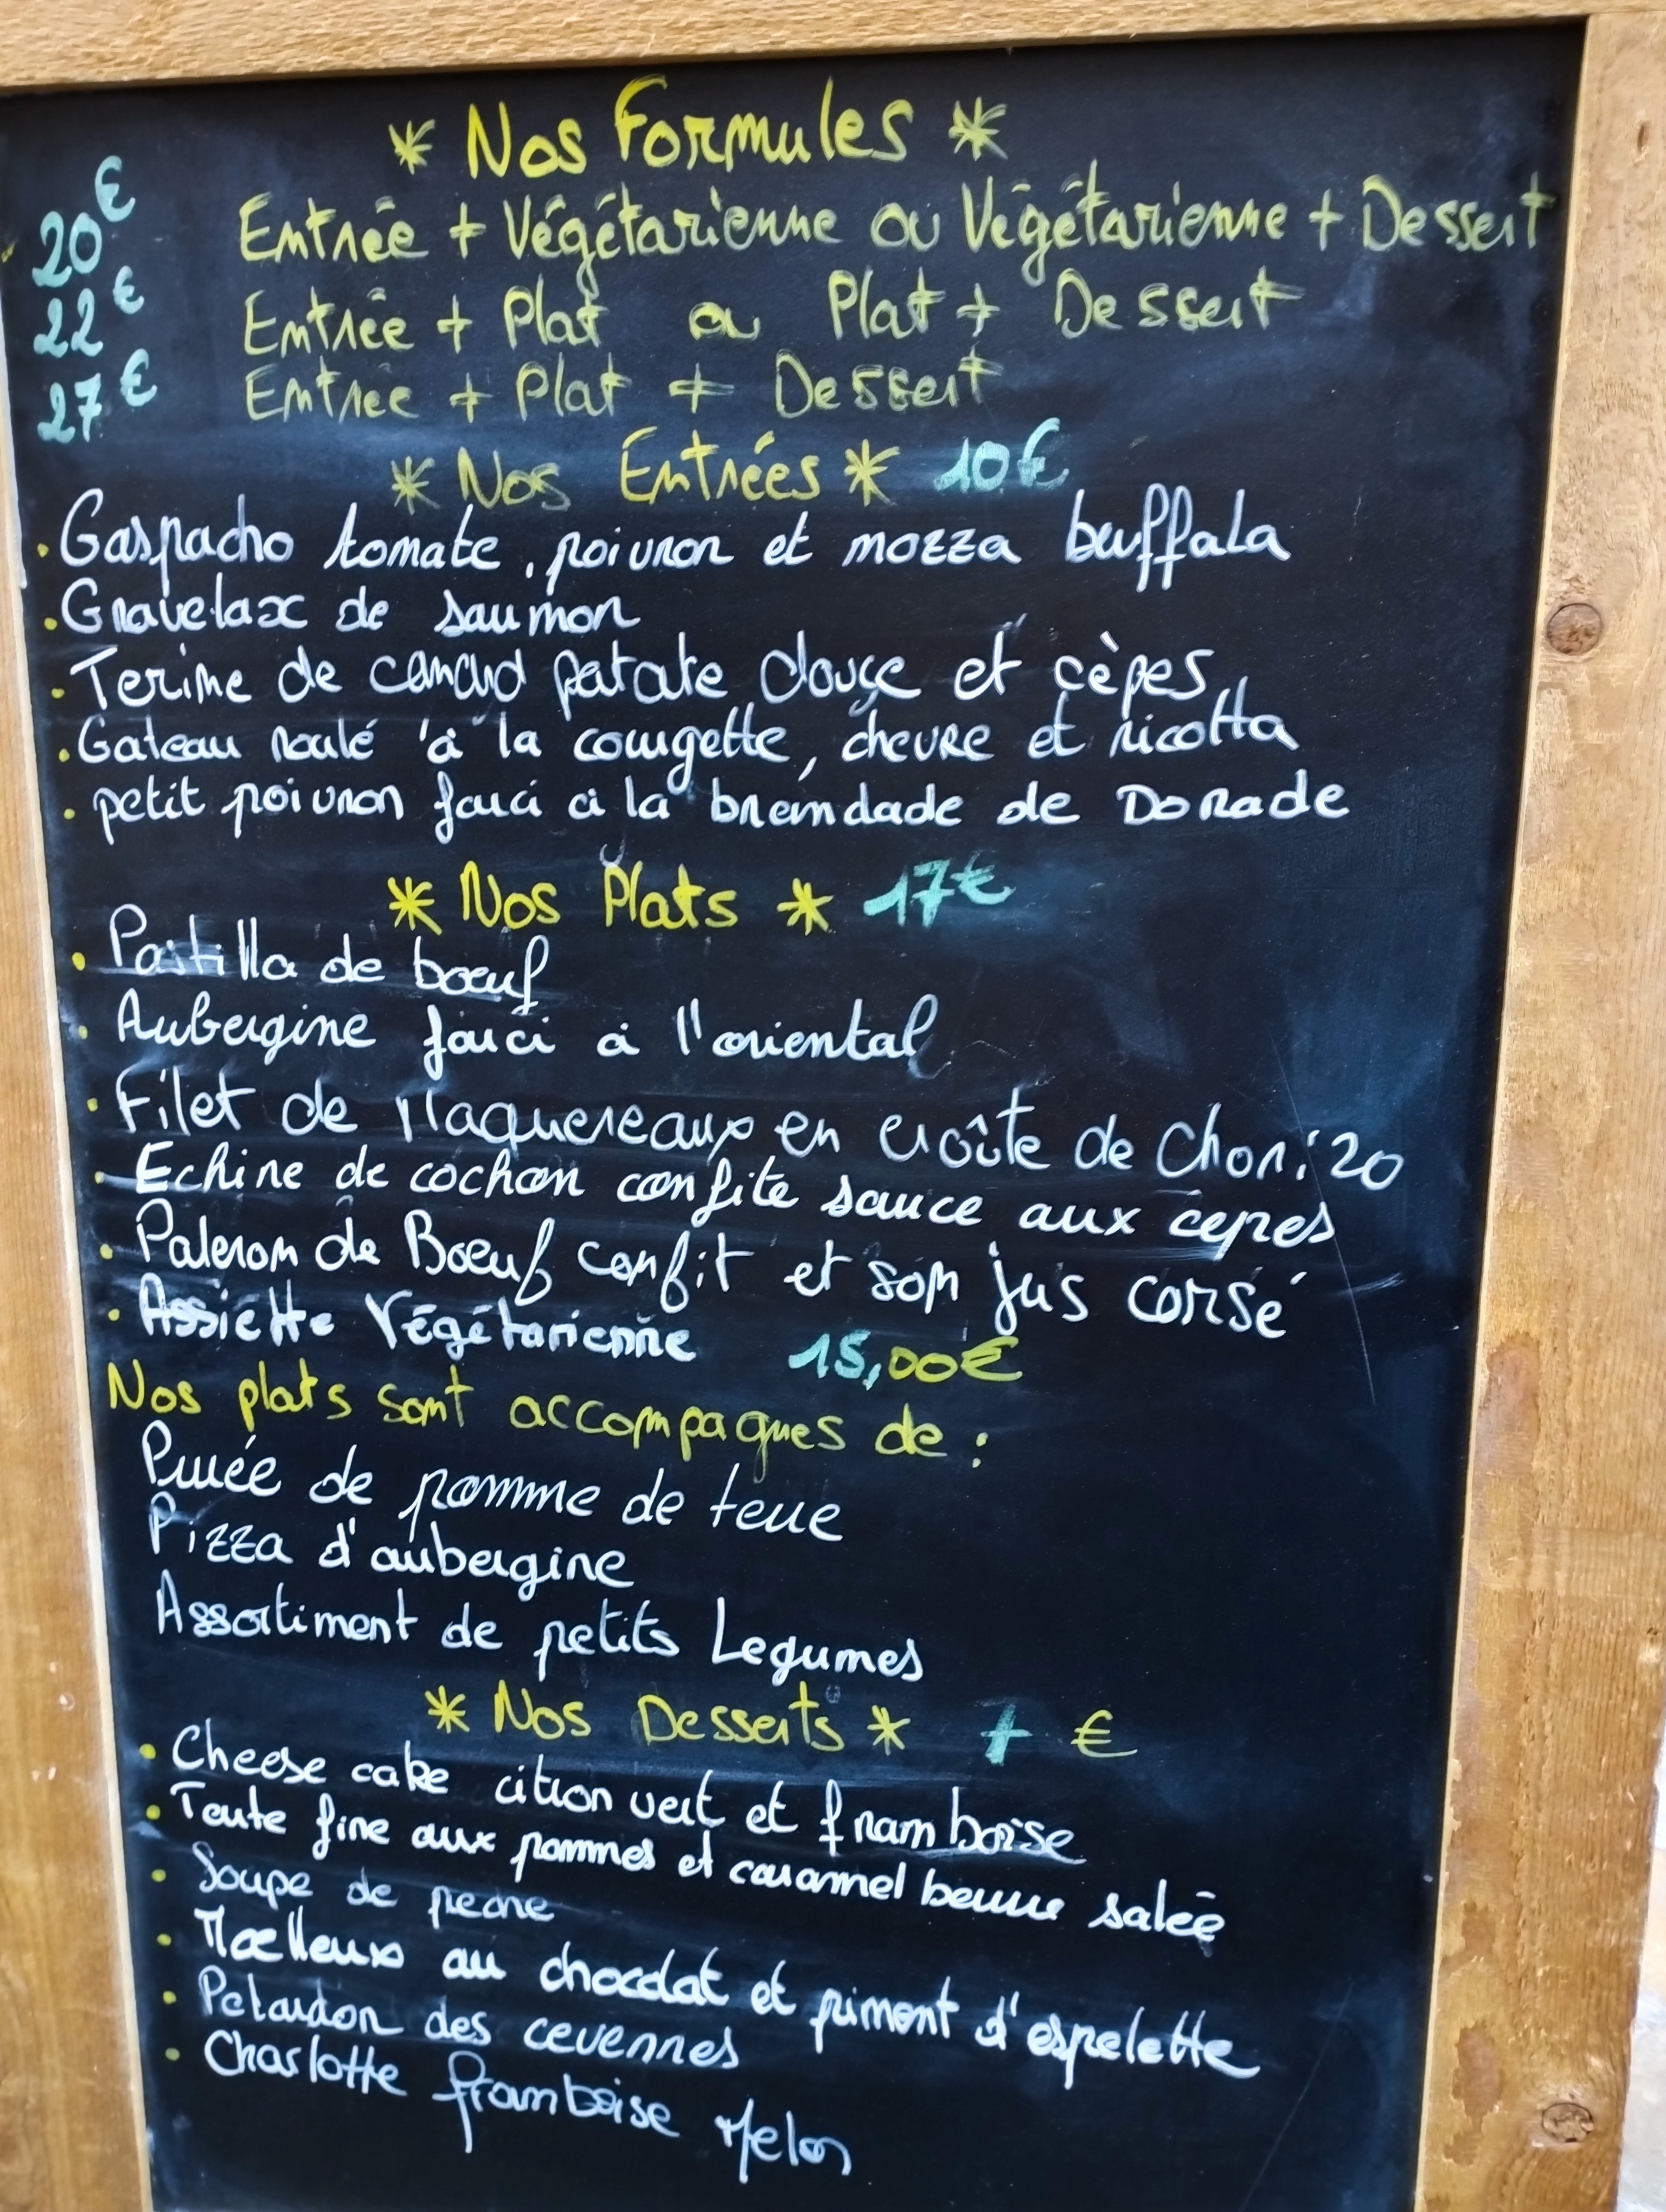 * Nos Formules *
20€ Entrée + Végétarienne ou Végétarienne + Dessert
22€ Entrée + Plat ou Plat + Dessert
27€ Entrée + Plat + Dessert
* Nos Entrées * 10€
. Gaspacho tomate, poivron et mozza buffala
. Gravelax de saumon
. Terrine de canard patate douce et cèpes
. Gateau roulé à la courgette, chevre et ricotta
. petit poivron farci à la brandade de Dorade
* Nos Plats * 17€
. Pastilla de boeuf
. Aubergine farci à l'oriental
. Filet de Maquereaux en croûte de Chorizo
. Echine de cochon confite sauce aux cepes
. Paleron de Boeuf confit et son jus corsé
. Assiette Végétarienne 15,00€
Nos plats sont accompagnes de :
Purée de pomme de terre
Pizza d'aubergine
Assortiment de petits Legumes
* Nos Desserts * 7 €
. Cheese cake citron vert et framboise
. Tarte fine aux pommes et caramel beurre salée
. Soupe de peche
. Moelleux au chocolat et piment d'espelette
. Pelardon des cevennes
. Charlotte framboise Melon